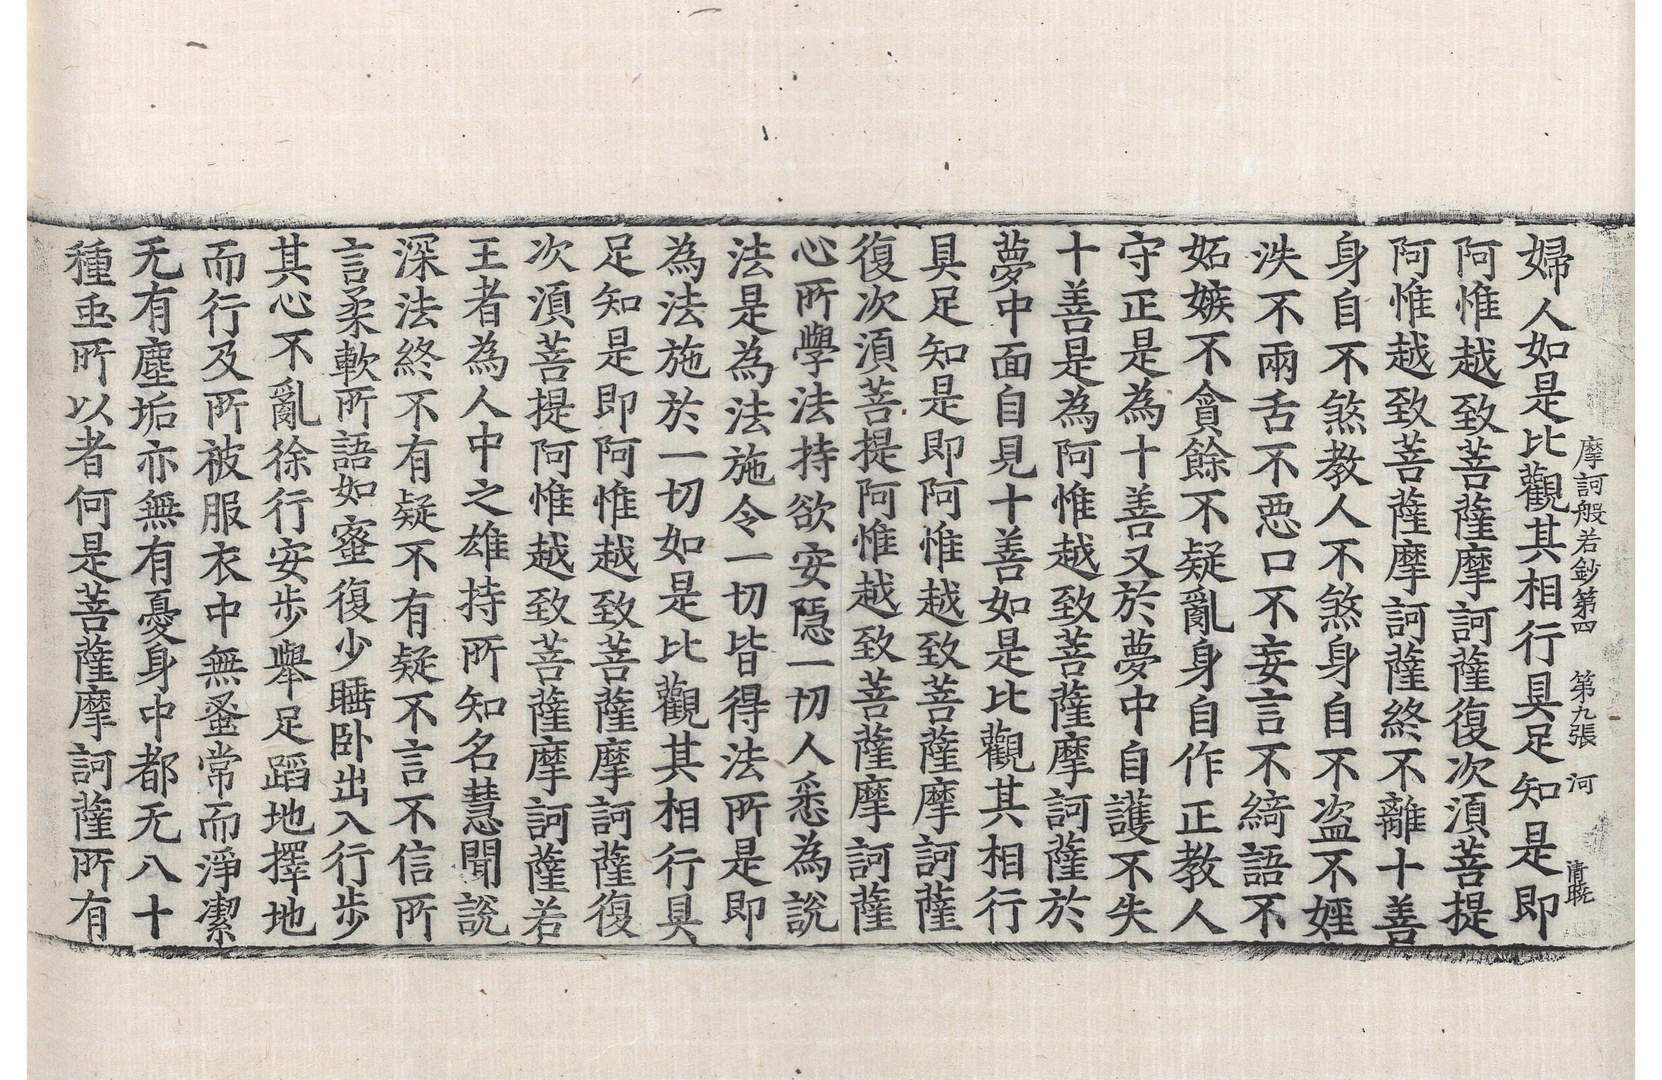 摩訶般若鈔第四　第九張　河　清曉
婦人如是比觀其相行具足知是即
阿惟越致菩薩摩訶薩復次湏菩提
阿惟越致菩薩摩訶薩終不離十善
身自不煞教人不煞身自不盜不婬
泆不兩舌不惡口不妄言不綺語不
妬嫉不貪餘不疑亂身自作正教人
守正是為十善又於夢中自護不失
十善是為阿惟越致菩薩摩訶薩於
夢中面自見十善如是比觀其相行
具足知是即阿惟越致菩薩摩訶薩
復次湏菩提阿惟越致菩薩摩訶薩
心所學法持欲安隱一切人悉為說
法是為法施令一切皆得法所是即
為法施於一切如是比觀其相行具
足知是即阿惟越致菩薩摩訶薩復
次湏菩提阿惟越致菩薩摩訶薩若
王者為人中之雄持所知名慧聞說
深法終不有疑不有疑不言不信所
言柔軟所語如蜜復少睡卧出入行步
其心不亂徐行安步舉足蹈地擇地
而行及所被服衣中無蚤常而淨潔
无有塵垢亦無有憂身中都无八十
種虫所以者何是菩薩摩訶薩所有